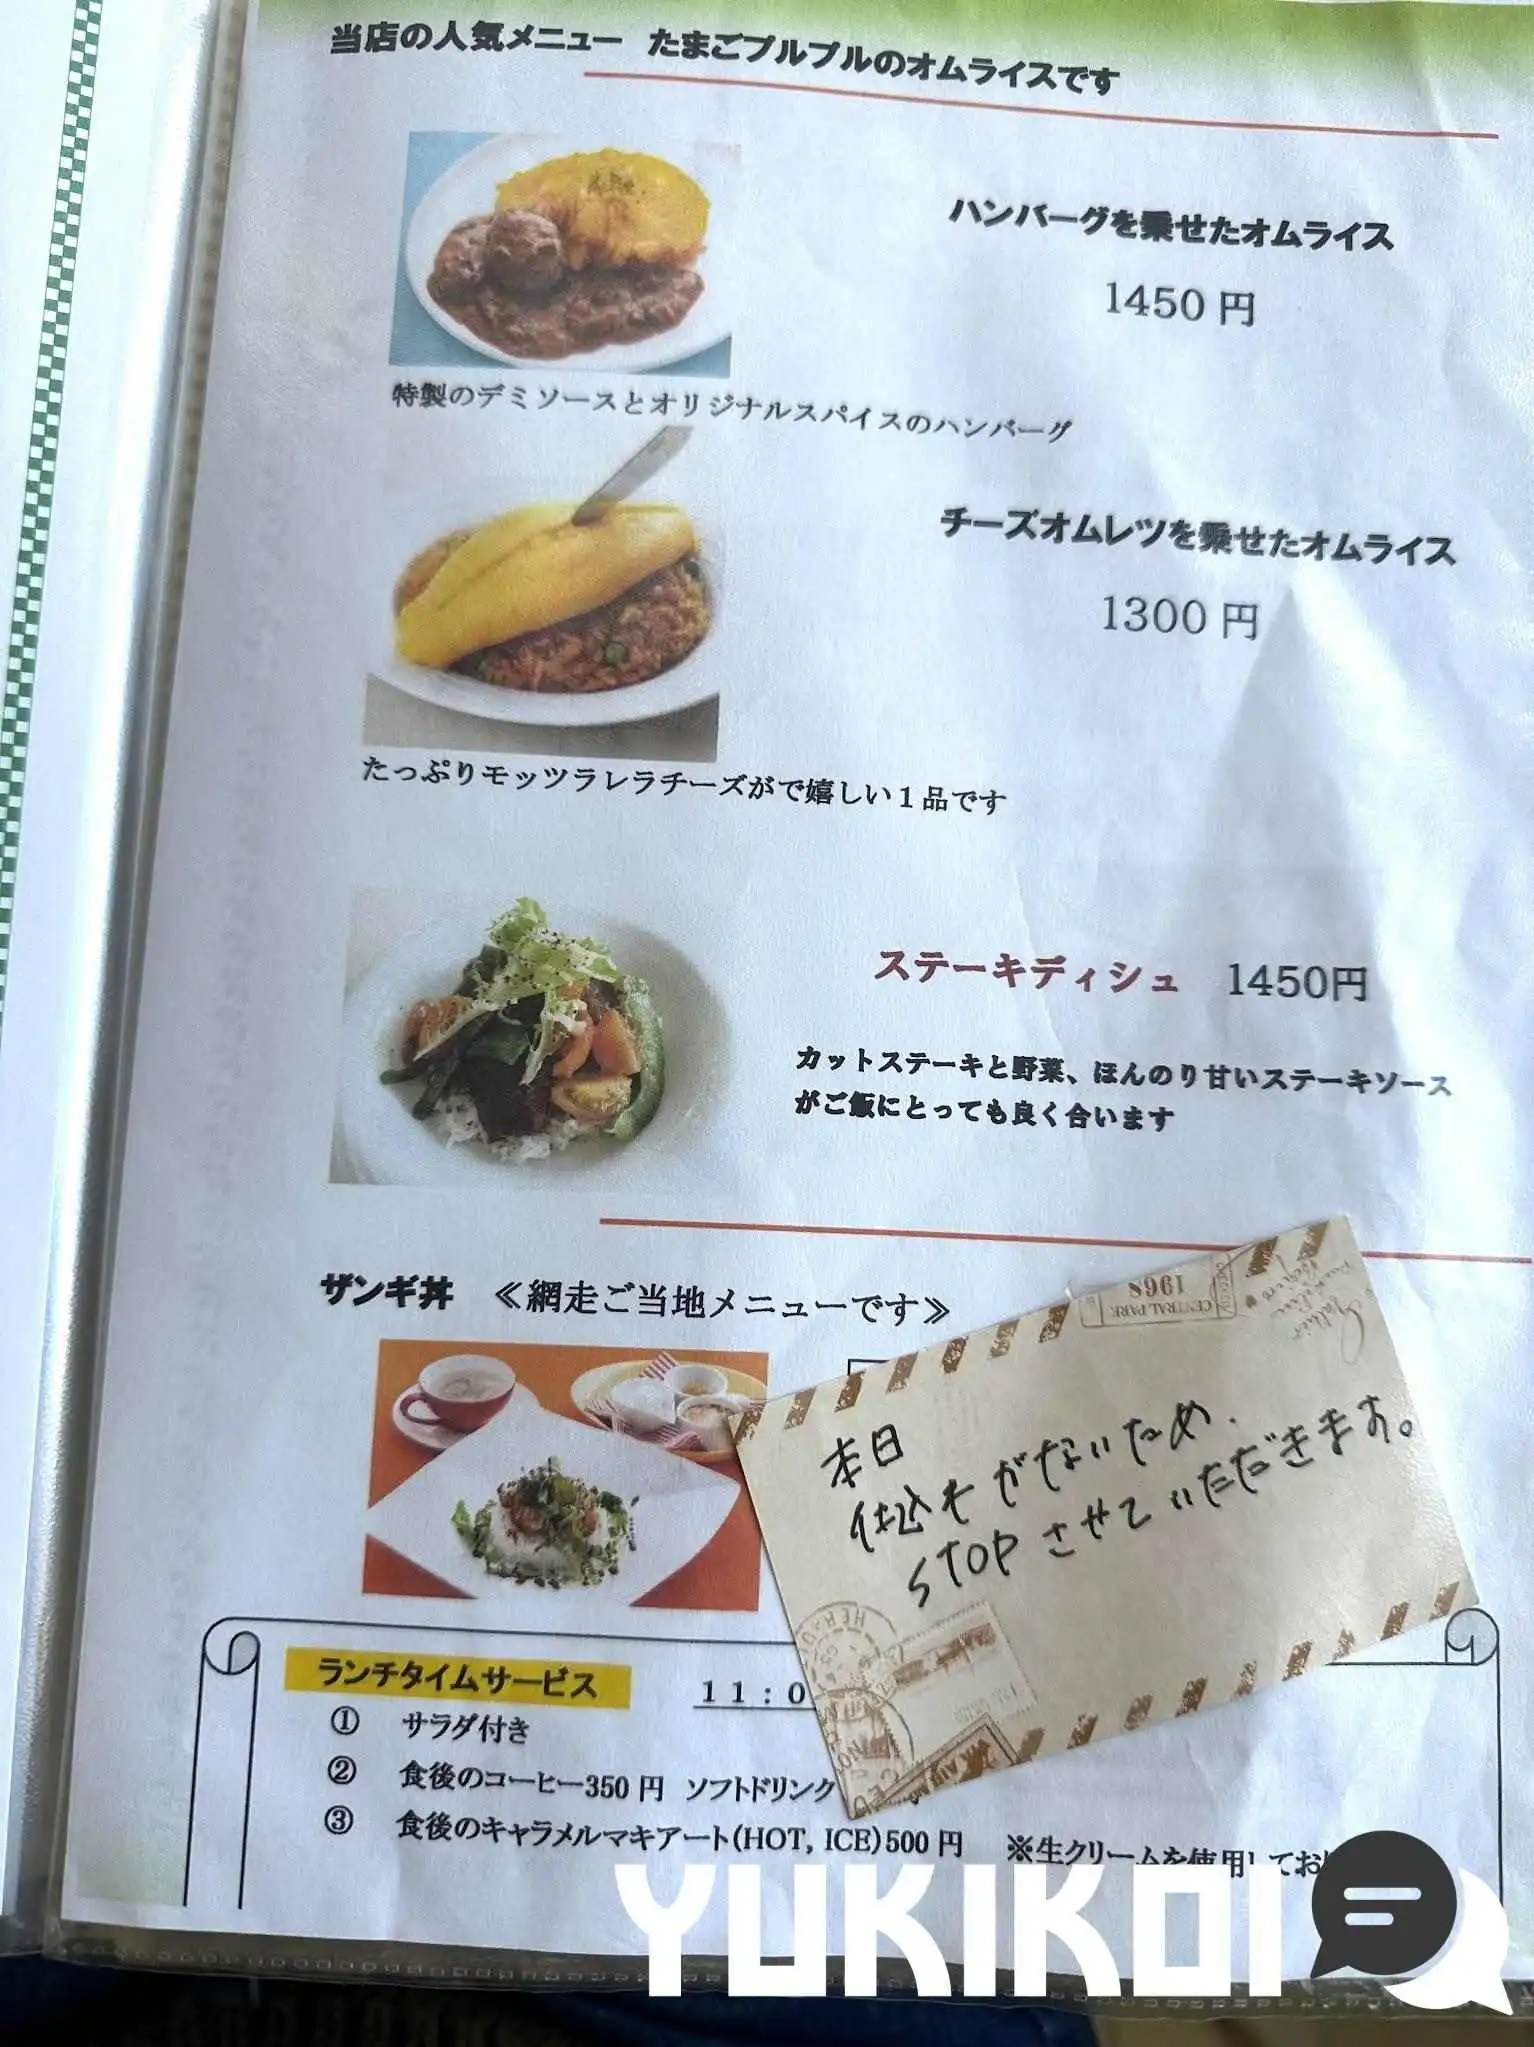 当店の人気メニュー たまごプルプルのオムライスです
ハンバーグを乗せたオムライス
1450 円
特製のデミソースとオリジナルスパイスのハンバーグ
チーズオムレツを乗せたオムライス
1300 円
たっぷりモッツラレラチーズがで嬉しい1品です
ステーキディシュ 1450円
カットステーキと野菜、ほんのり甘いステーキソース
がご飯にとっても良く合います
ザンギ丼 ≪網走ご当地メニューです≫
CENTRAL PARK
1968
本日
仕込みがないため、
STOPさせていただきます。
ランチタイムサービス 11:0
① サラダ付き
② 食後のコーヒー350 円 ソフトドリンク
③ 食後のキャラメルマキアート(HOT, ICE)500 円 ※生クリームを使用してお
YUKIKOI